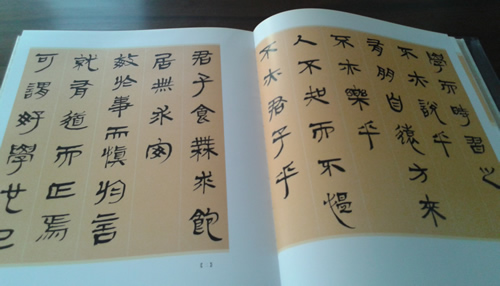 學而時習之
不亦說乎
有朋自遠方來
不亦樂乎
人不知而不慍
不亦君子乎
君子食無求飽
居無求安
敏於事而慎於言
就有道而正焉
可謂好學也已